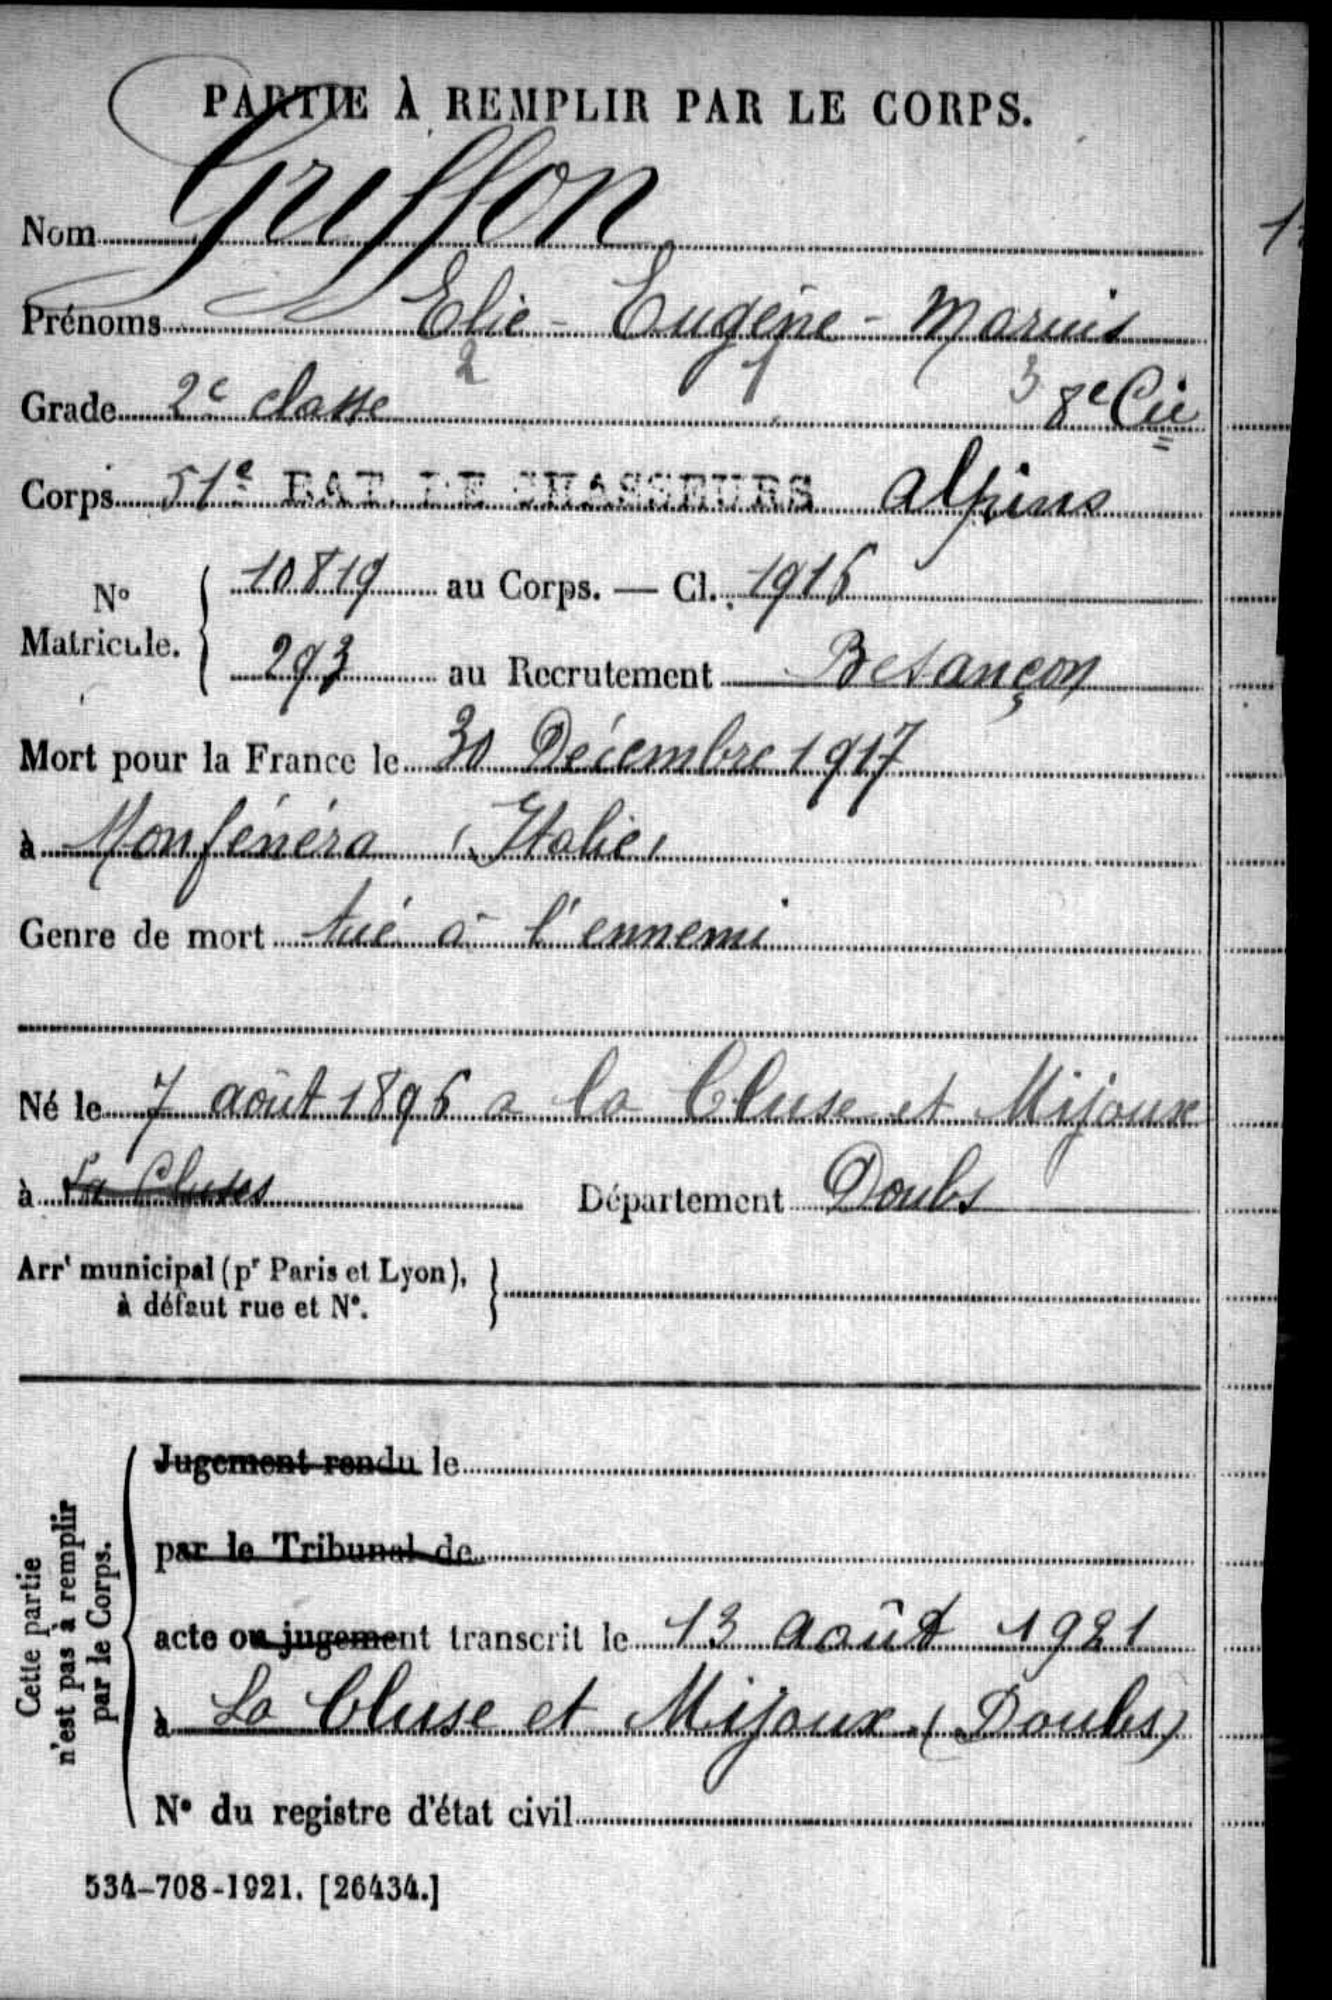 PARTIE À REMPLIR PAR LE CORPS.
Nom Griffon
Prénoms Elie - Eugène - Marius
2 1 3
Grade 2e classe 8e Cie
Corps 51e BAT. DE CHASSEURS alpins
No Matricule. 10819 au Corps. — Cl. 1916
293 au Recrutement Besançon
Mort pour la France le 30 Décembre 1917
à Monfénéra (Italie)
Genre de mort tué à l'ennemi
Né le 7 août 1896 a la Cluse et Mijoux
à La Cluses Département Doubs
Arrt municipal (pr Paris et Lyon),
à défaut rue et No.
Cette partie
n'est pas à remplir
par le Corps.
Jugement rendu le
par le Tribunal de
acte ou jugement transcrit le 13 août 1921
à La Cluse et Mijoux (Doubs)
No du registre d'état civil
534-708-1921. [26434.]